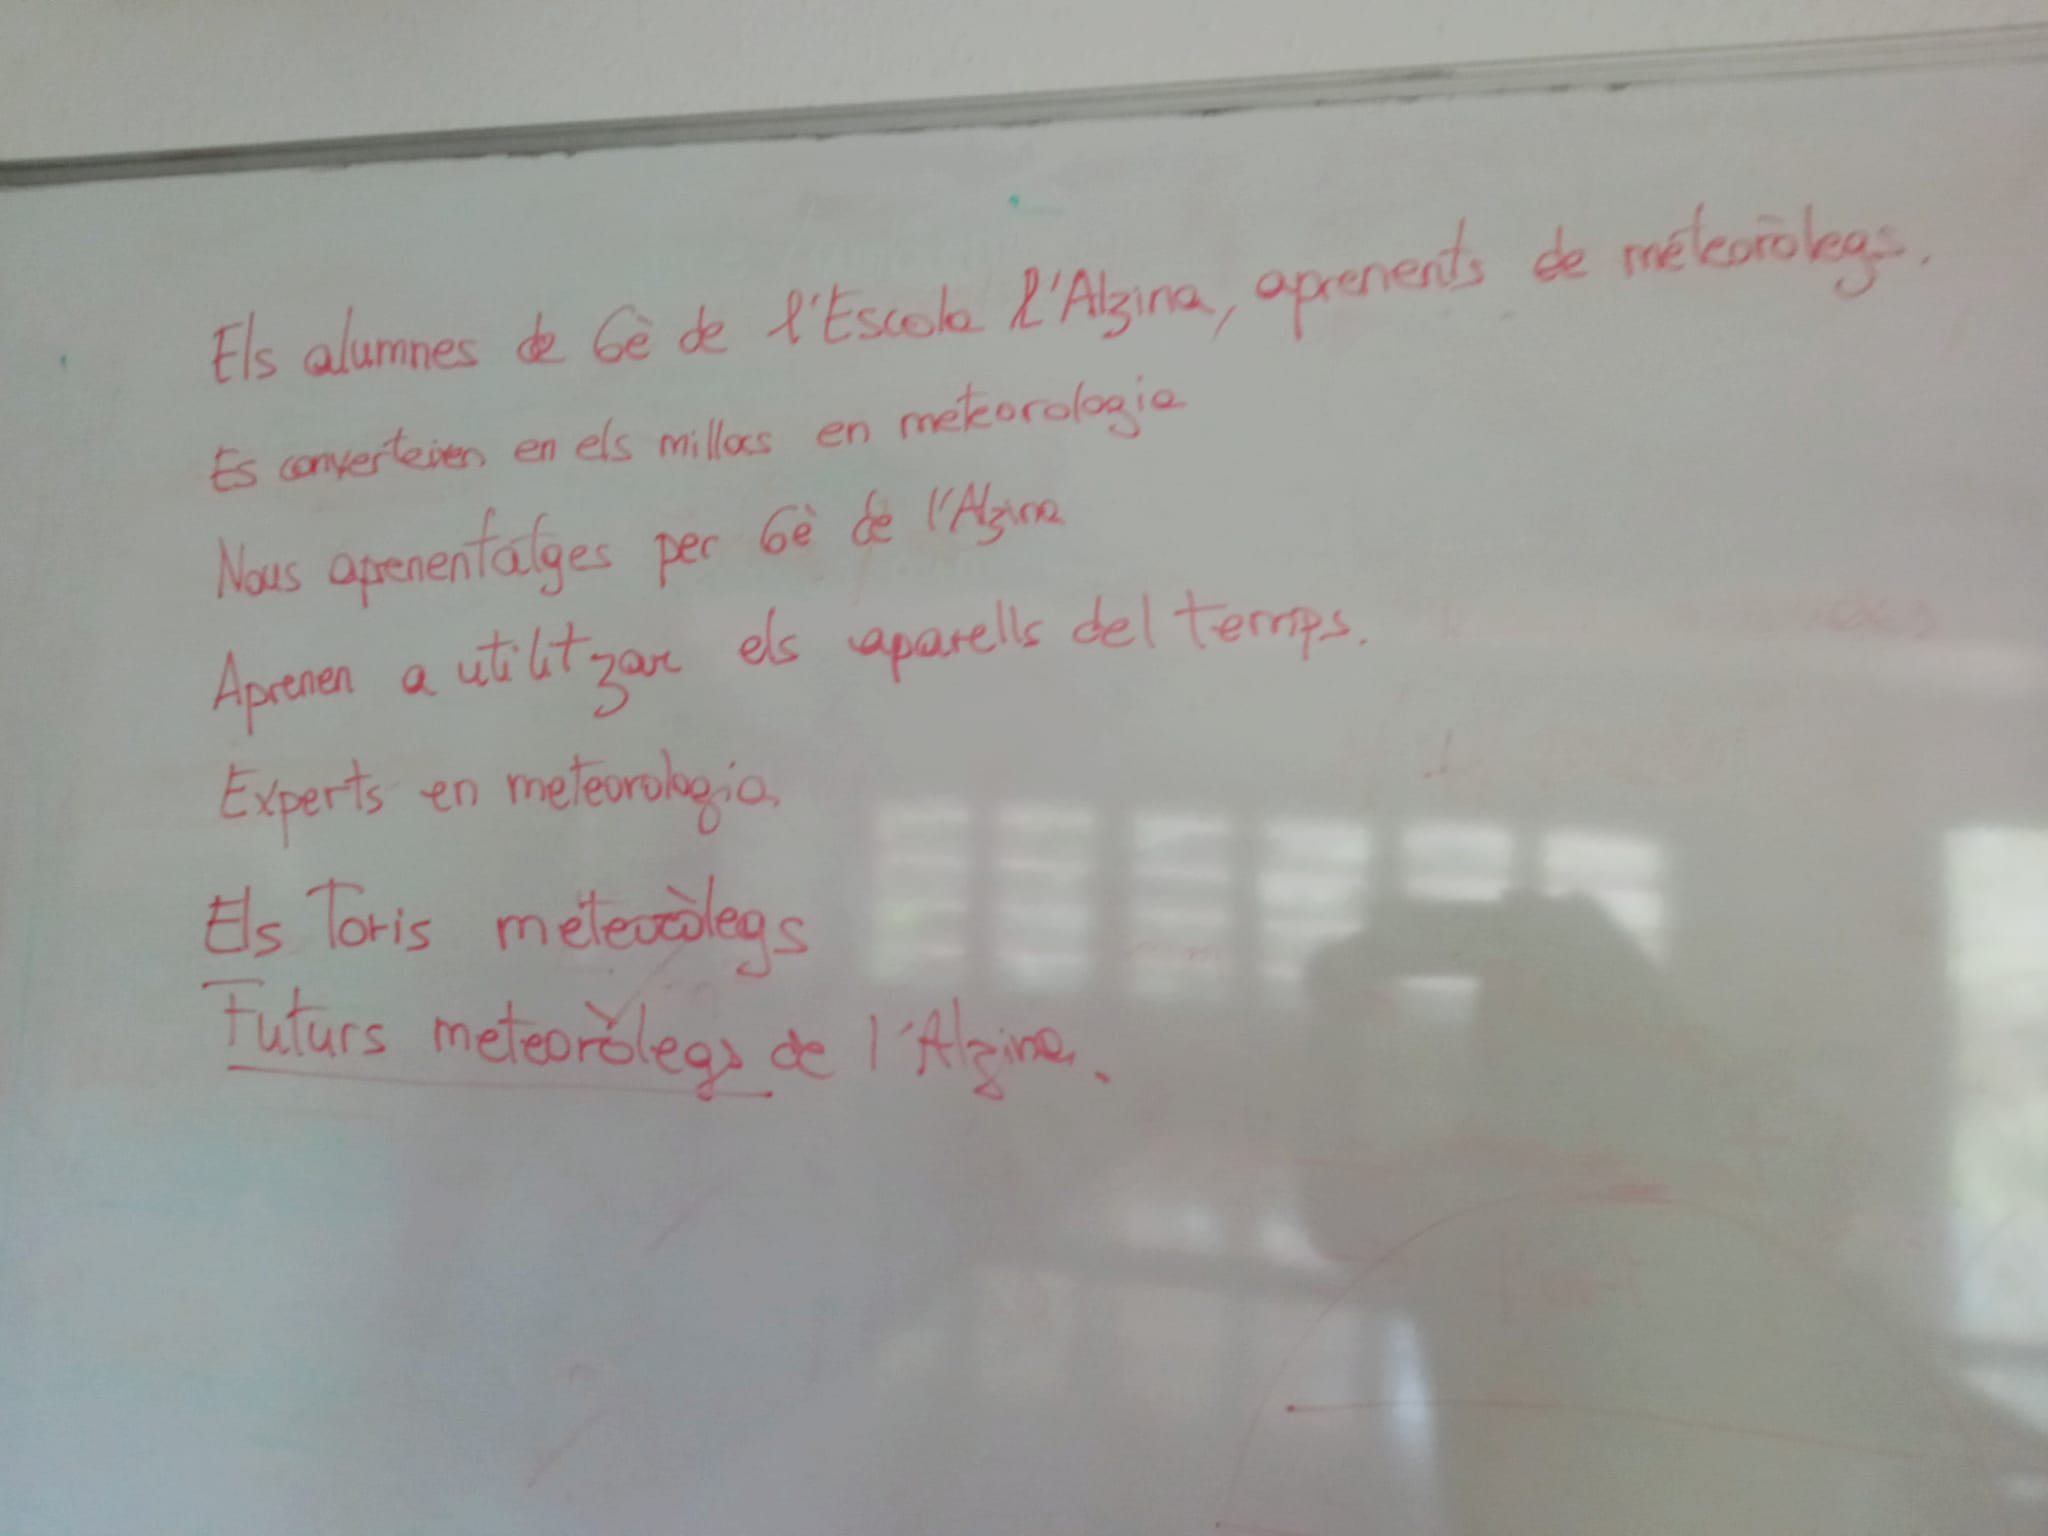 Els alumnes de 6è de l'Escola l'Alzina, aprenents de meteoròlegs.
Es converteixen en els millors en meteorologia
Nous aprenentatges per 6è de l'Alzina
Aprenen a utilitzar els aparells del temps.
Experts en meteorologia
Els Toris meteoròlegs
Futurs meteoròlegs de l'Alzina.